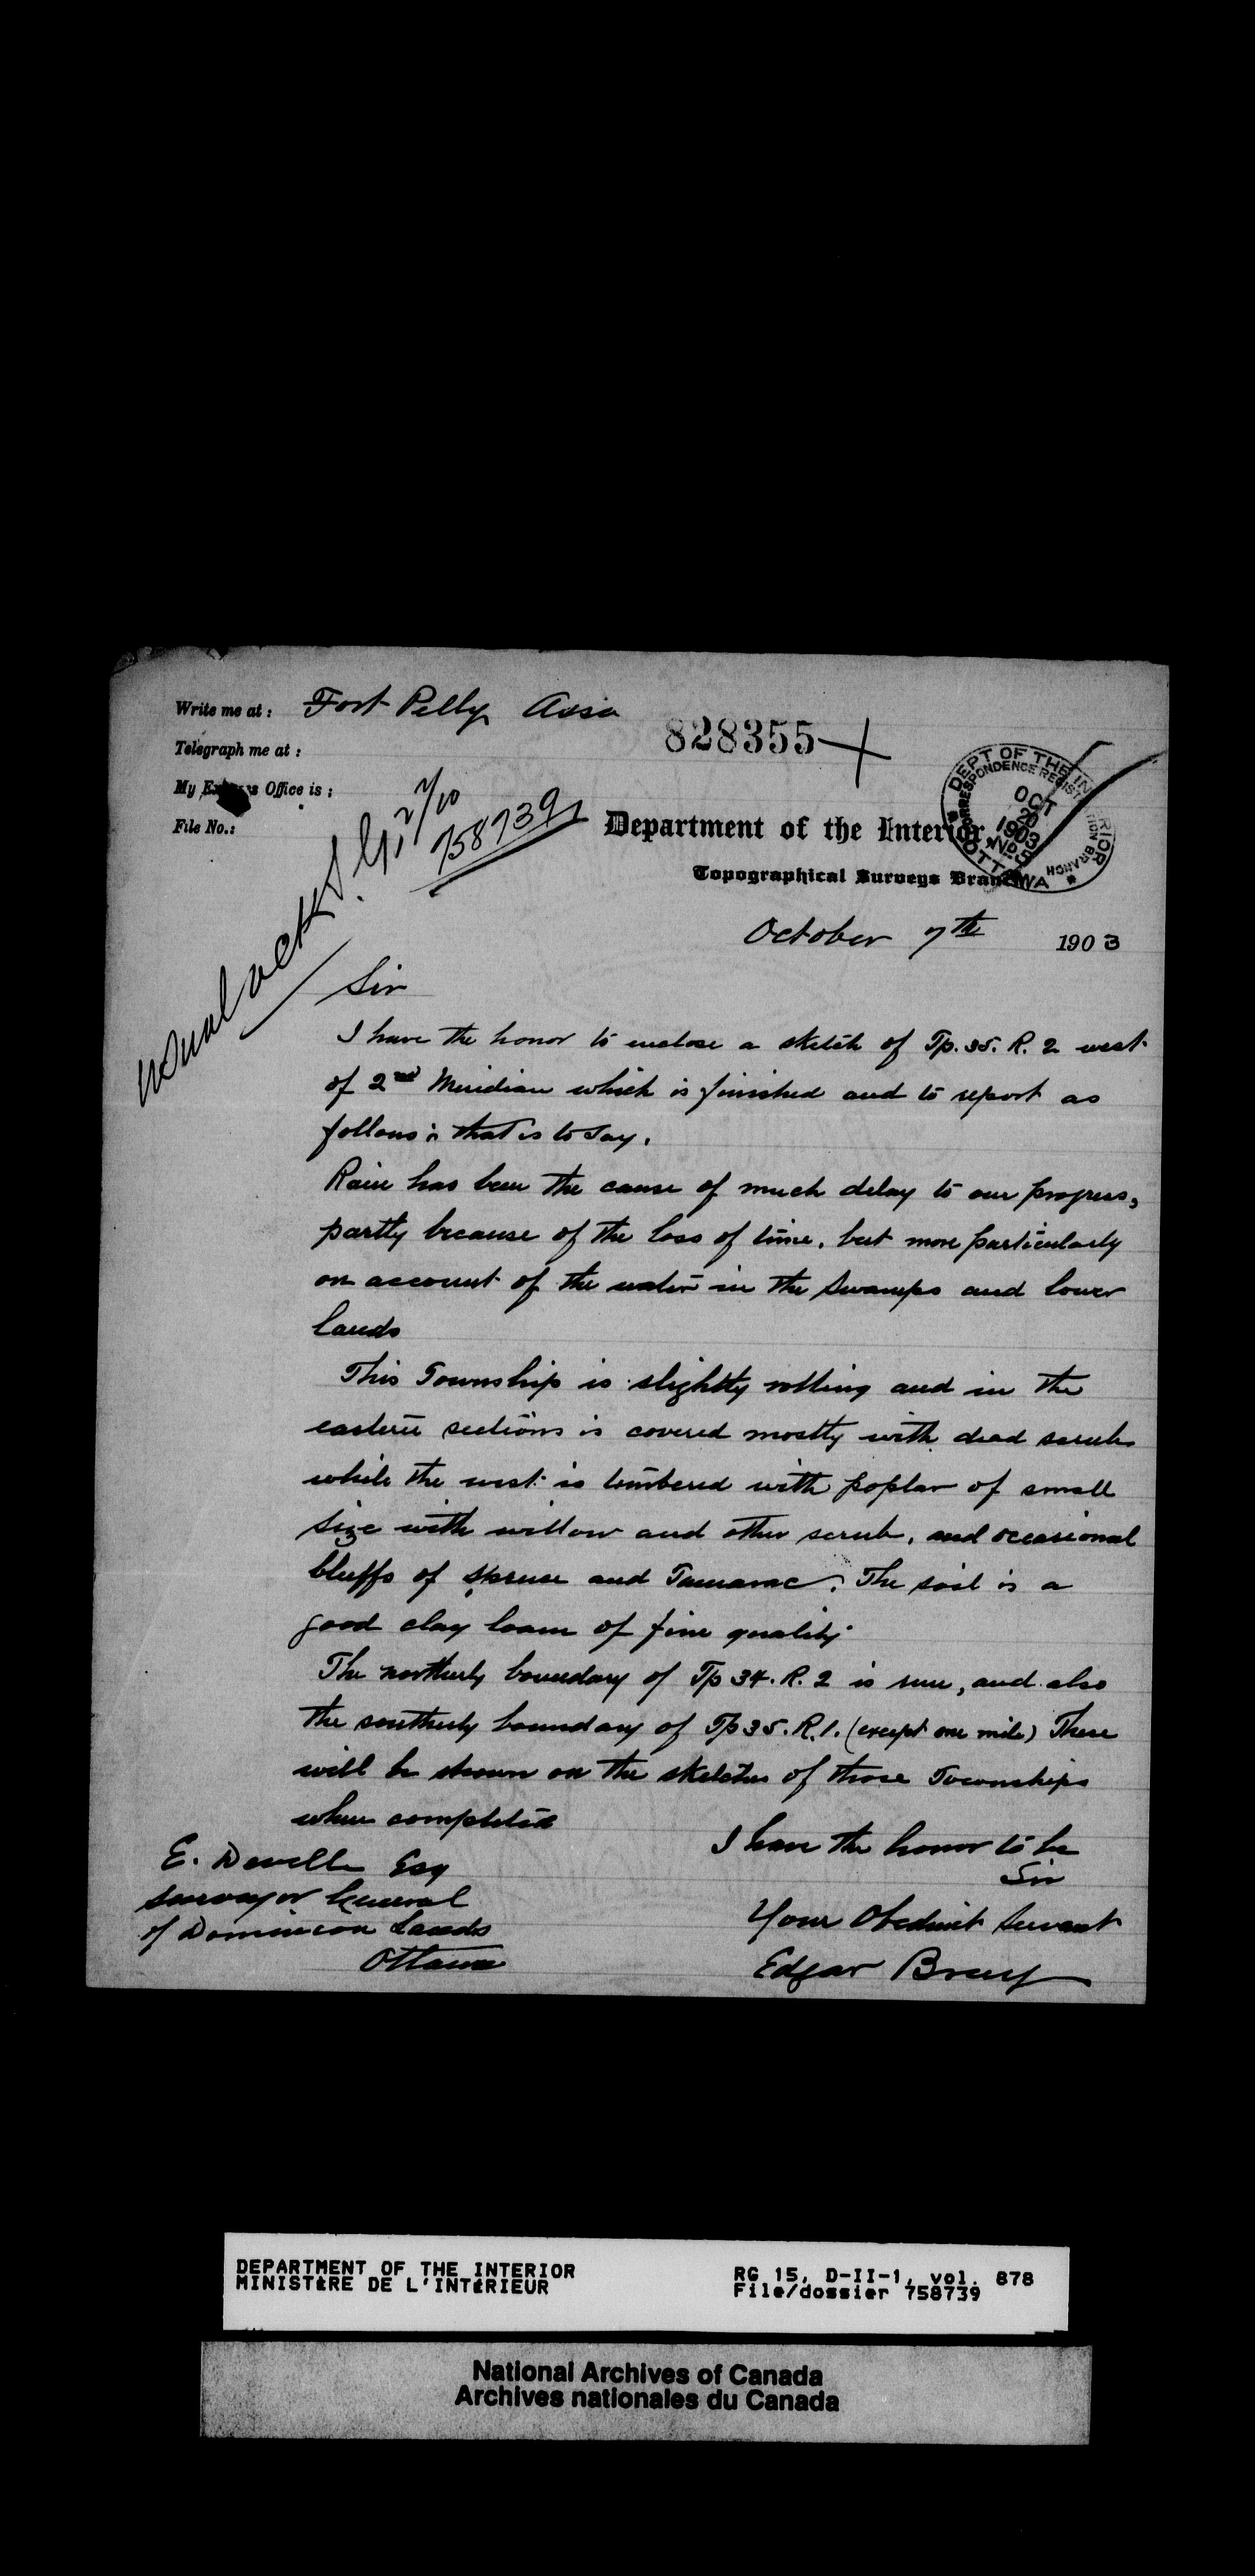 Write me at: Fort Pelly Assa
Telegraph me at:
My Express Office is:
File No.:
828355
usual ack S.G. 27/10
758739
DEPT OF THE INTERIOR
CORRESPONDENCE REGISTRATION BRANCH
OCT
20
1903
No. 5
OTTAWA
Department of the Interior,
Topographical Surveys Branch
October 7th 1903
Sir
I have the honor to enclose a sketch of Tp. 35. R. 2 west
of 2nd Meridian which is finished and to report as
follows: that is to say.
Rain has been the cause of much delay to our progress,
partly because of the loss of time, but more particularly
on account of the water in the swamps and lower
lands
This Township is slightly rolling and in the
eastern sections is covered mostly with dead scrub
while the west is timbered with poplar of small
size with willow and other scrub, and occasional
bluffs of spruce and Tamarac. The soil is a
good clay loam of fine quality
The northerly boundary of Tp 34. R. 2 is run, and also
the southerly boundary of Tp 35. R. 1. (except one mile) These
will be shown on the sketches of those Townships
when completed
I have the honor to be
Sir
Your Obedient Servant
Edgar Bray
E. Deville Esq
Surveyor General
of Dominion Lands
Ottawa
DEPARTMENT OF THE INTERIOR
MINISTÈRE DE L'INTÉRIEUR
RG 15, D-II-1, vol. 878
File/dossier 758739
National Archives of Canada
Archives nationales du Canada